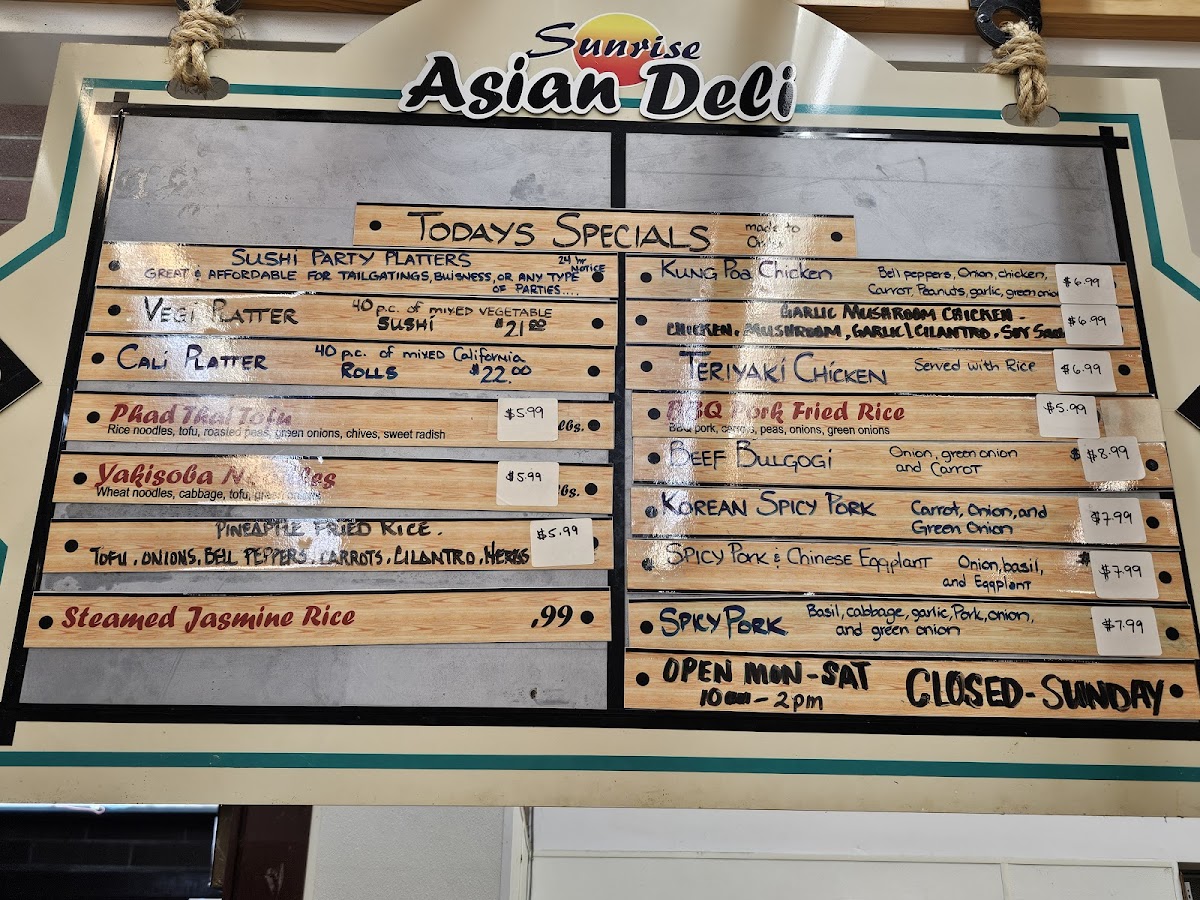 Sunrise
Asian Deli
TODAYS SPECIALS made to
SUSHI PARTY PLATTERS 24 hr NOTICE
GREAT & AFFORDABLE FOR TAILGATINGS, BUISNESS, OR ANY TYPE
OF PARTIES....
VEGI PLATTER 40 p.c. of MIXED VEGETABLE
SUSHI $21.00
CALI PLATTER 40 p.c. of mixed California
ROLLS $22.00
Phad Thai Tofu $5.99 lbs.
Rice noodles, tofu, roasted peas, green onions, chives, sweet radish
Yakisoba Noodles $5.99 lbs.
Wheat noodles, cabbage, tofu, green onions
PINEAPPLE FRIED RICE. $5.99
TOFU, ONIONS, BELL PEPPERS, CARROTS, CILANTRO, HERBS
Steamed Jasmine Rice .99
KUNG POA Chicken Bell peppers, Onion, chicken, $6.99
Carrot, Peanuts, garlic, green onion
GARLIC MUSHROOM CHICKEN - $6.99
CHICKEN, MUSHROOM, GARLIC, CILANTRO, SOY
TERIYAKI CHICKEN Served with Rice $6.99
BBQ Pork Fried Rice $5.99
BBQ pork, carrots, peas, onions, green onions
BEEF BULGOGI Onion, green onion $8.99
and Carrot
KOREAN SPICY PORK Carrot, Onion, and $7.99
Green Onion
SPICY PORK & Chinese Eggplant Onion, basil, $7.99
and Eggplant
SPICY PORK Basil, cabbage, garlic, Pork, onion, $7.99
and green onion
OPEN MON-SAT CLOSED-SUNDAY
10am-2pm